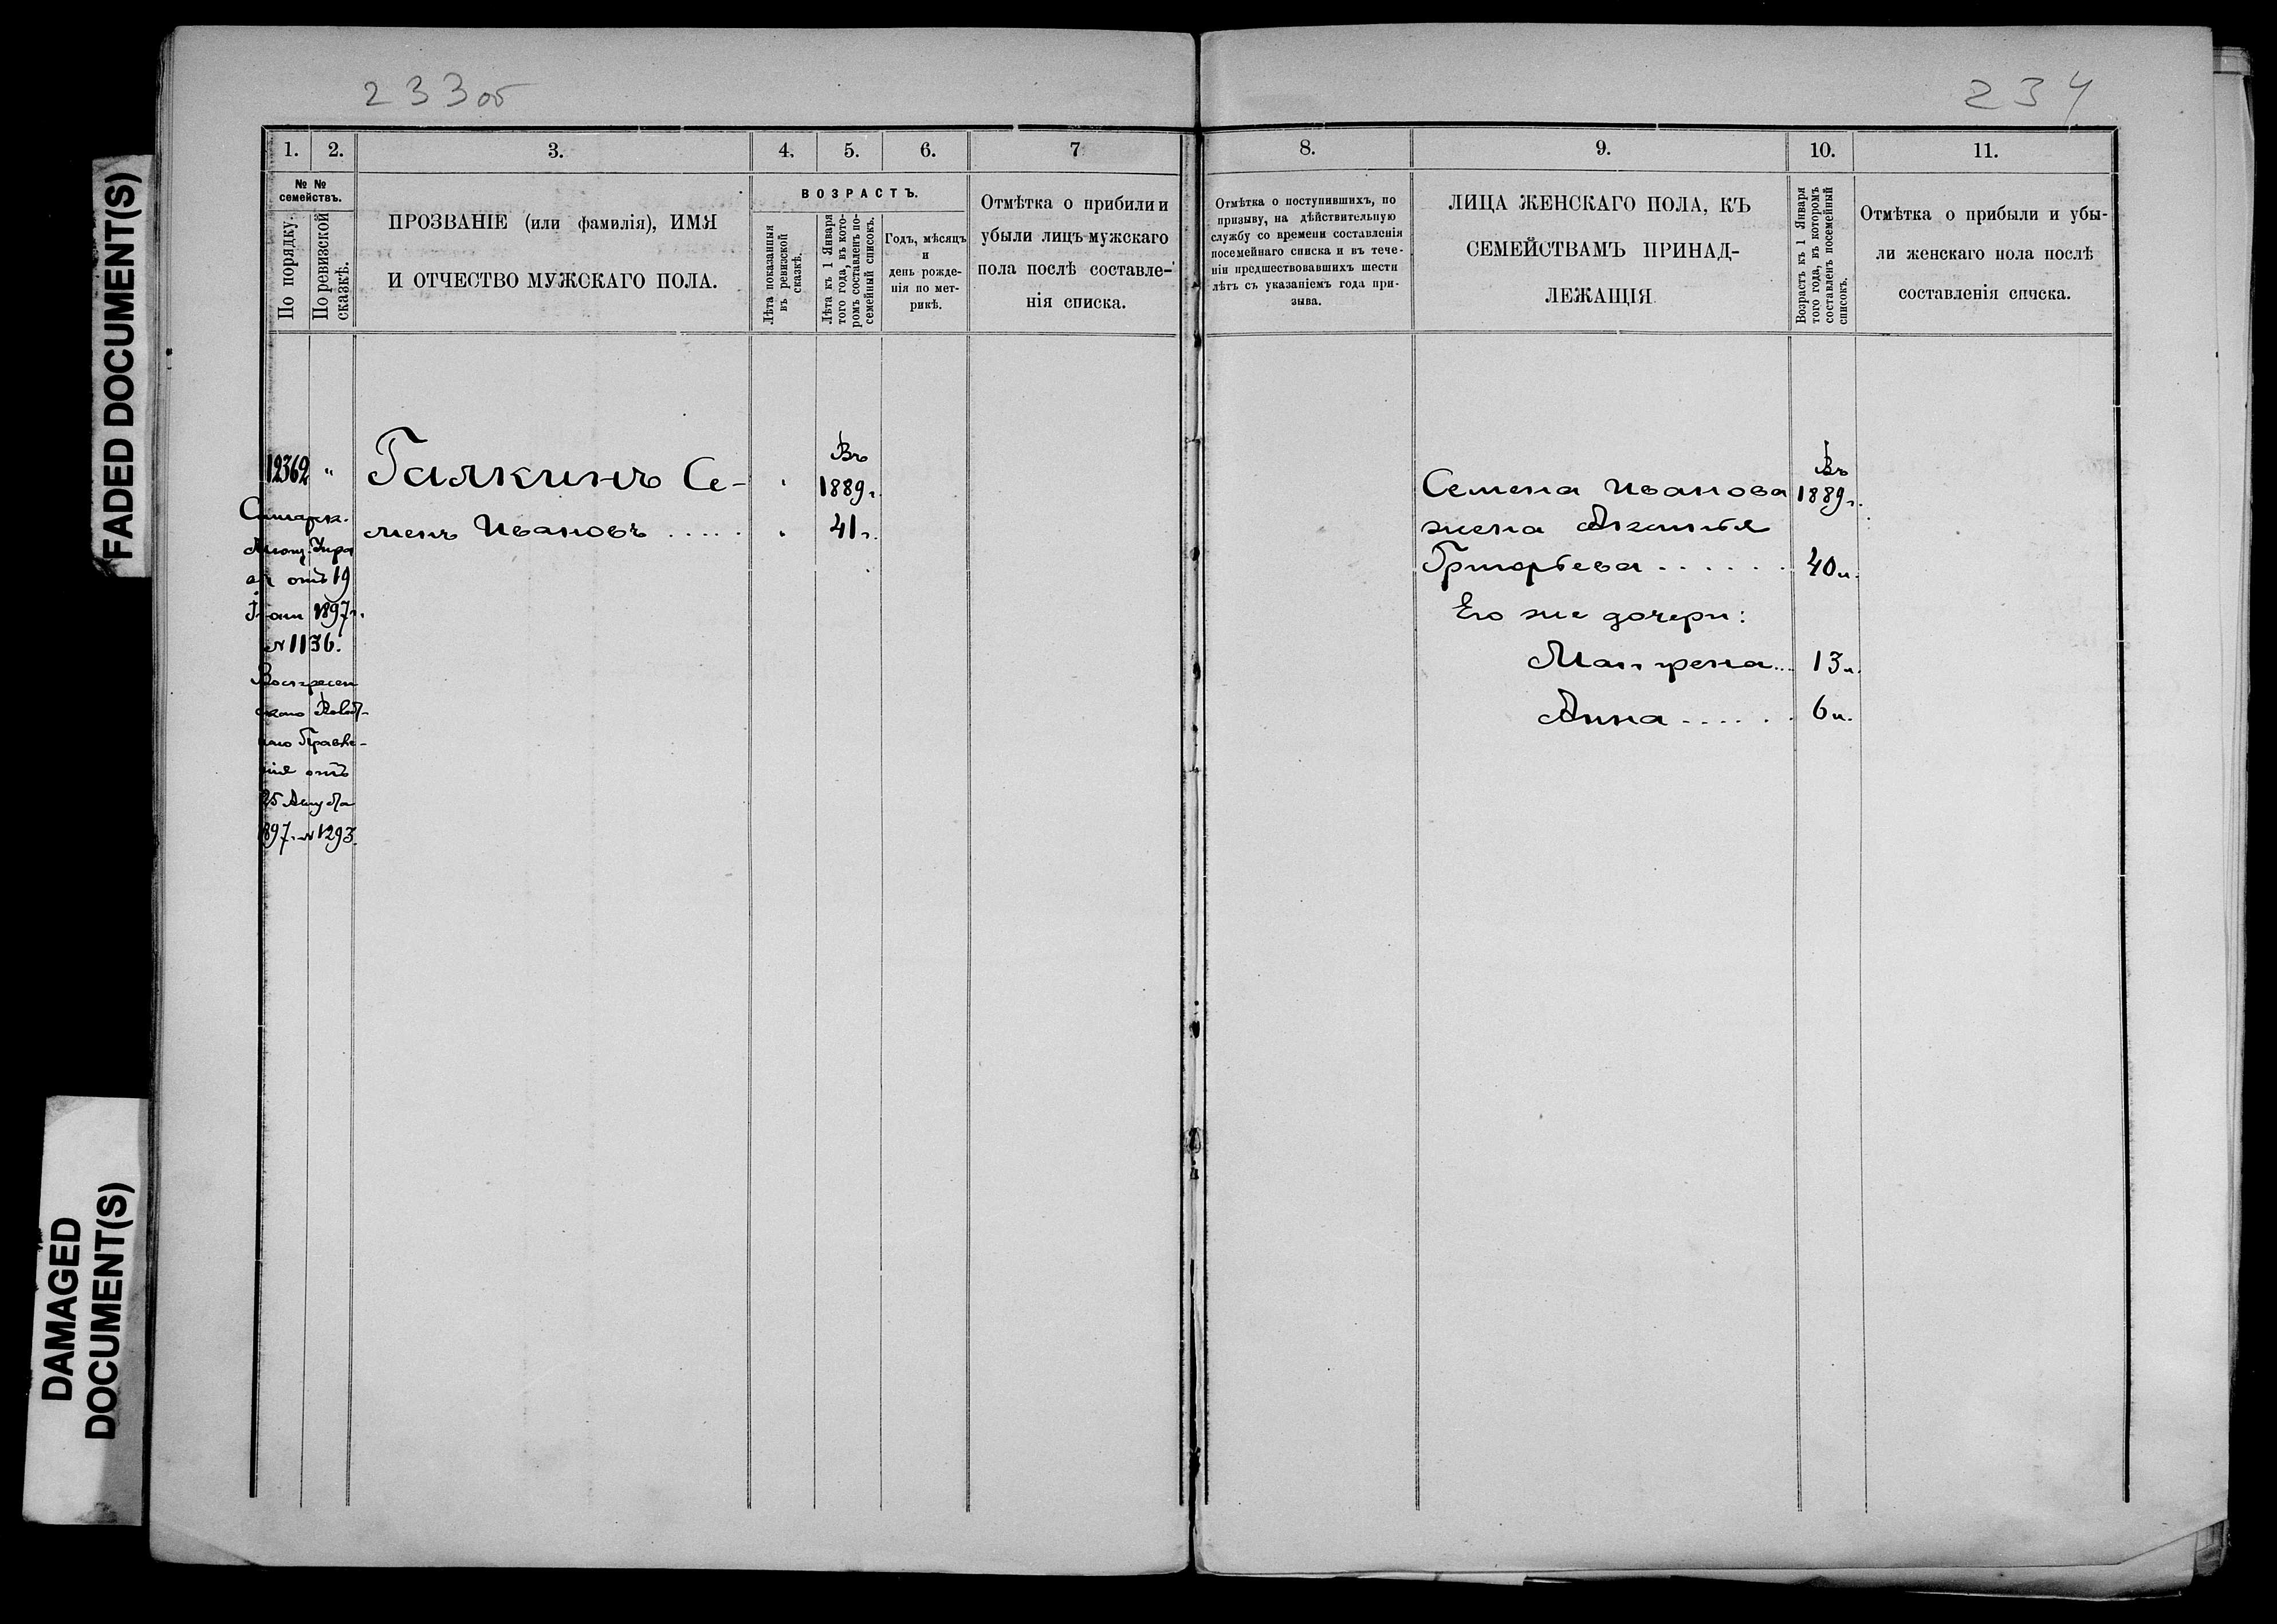 FADED DOCUMENT(S)
DAMAGED
DOCUMENT(S)
233об
1.
2.
3.
4.
5.
6.
7
№ №
семействъ.
По порядку.
По ревизской
сказкѣ.
ПРОЗВАНІЕ (или фамилія), ИМЯ
И ОТЧЕСТВО МУЖСКАГО ПОЛА.
ВОЗРАСТЪ.
Лѣта показанныя
въ ревизской
сказкѣ.
Лѣта къ 1 Января
того года, въ кото-
ромъ составленъ по-
семейный списокъ.
Годъ, мѣсяцъ
и
день рожде-
нія по мет-
рикѣ.
Отмѣтка о прибыли и
убыли лицъ мужскаго
пола послѣ составле-
нія списка.
12362
"
Самарск.
Мѣщ. Упра
отъ 19
1897 г.
№ 1136.
Воскресен
скаго Волост-
наго Правле-
нія отъ
25 Августа
1897. № 1293.
Галкинъ Се-
менъ Ивановъ . . . . .
Въ
1889 г.
41 г.
234
8.
9.
10.
11.
Отмѣтка о поступившихъ, по
призыву, на дѣйствительную
службу со времени составленія
посемейнаго списка и въ тече-
ніи предшествовавшихъ шести
лѣтъ съ указаніемъ года при-
зыва.
ЛИЦА ЖЕНСКАГО ПОЛА, КЪ
СЕМЕЙСТВАМЪ ПРИНАД-
ЛЕЖАЩІЯ
Возрастъ къ 1 Января
того года, въ которомъ
составленъ посемейный
списокъ.
Отмѣтка о прибыли и убы-
ли женскаго пола послѣ
составленія списка.
Въ
1889 г.
Семена Иванова
жена
Григорьева . . . . . . 40 л.
Его же дочери:
Матрена... 13 л.
Анна . . . . . . 6 л.